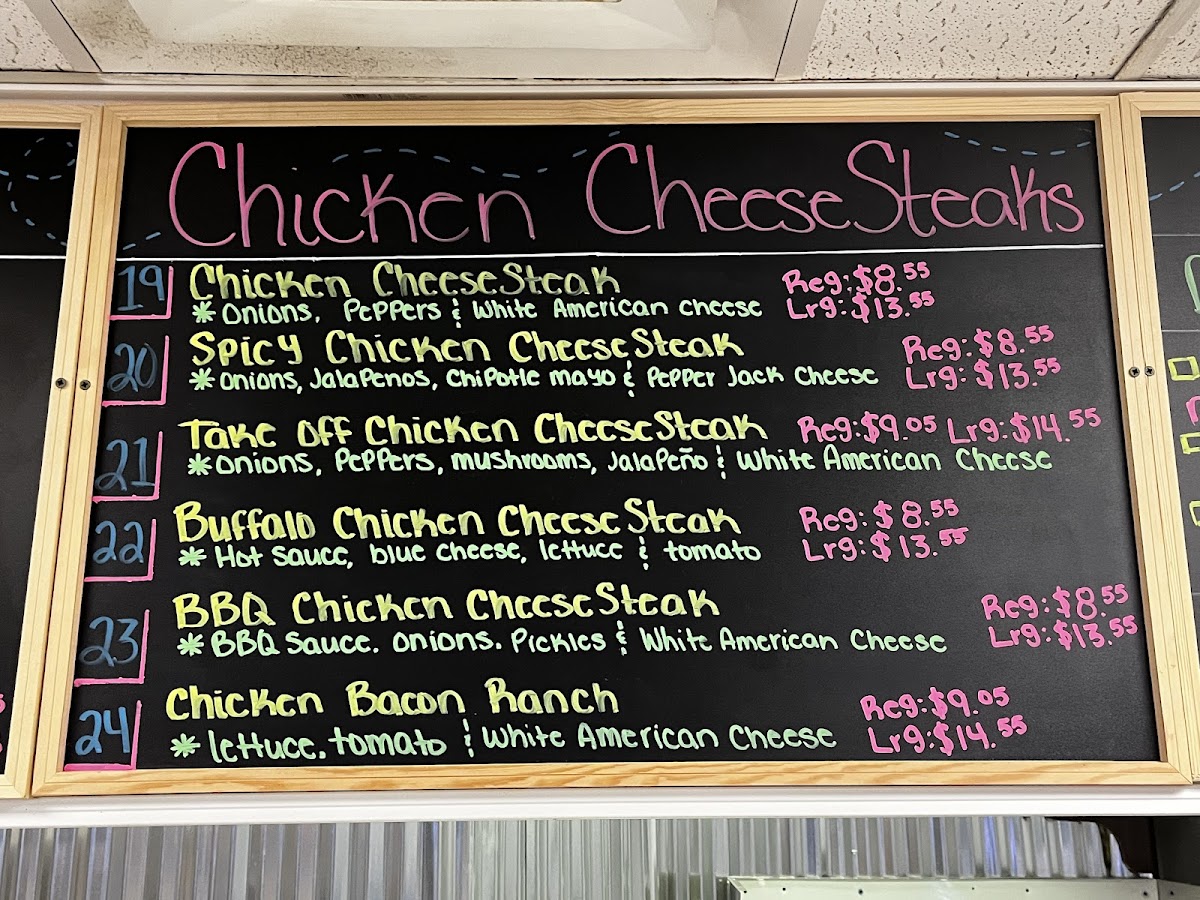 Chicken CheeseSteaks
19 Chicken CheeseSteak Reg: $8.55
* Onions, Peppers & White American cheese Lrg: $13.55
20 Spicy Chicken CheeseSteak Reg: $8.55
* Onions, Jalapenos, Chipotle mayo & Pepper Jack Cheese Lrg: $13.55
21 Take Off Chicken CheeseSteak Reg: $9.05 Lrg: $14.55
* Onions, Peppers, mushrooms, Jalapeño & White American Cheese
22 Buffalo Chicken CheeseSteak Reg: $8.55
* Hot Sauce, blue cheese, lettuce & tomato Lrg: $13.55
23 BBQ Chicken CheeseSteak Reg: $8.55
* BBQ Sauce. Onions. Pickles & White American Cheese Lrg: $13.55
24 Chicken Bacon Ranch Reg: $9.05
* lettuce. tomato & White American Cheese Lrg: $14.55